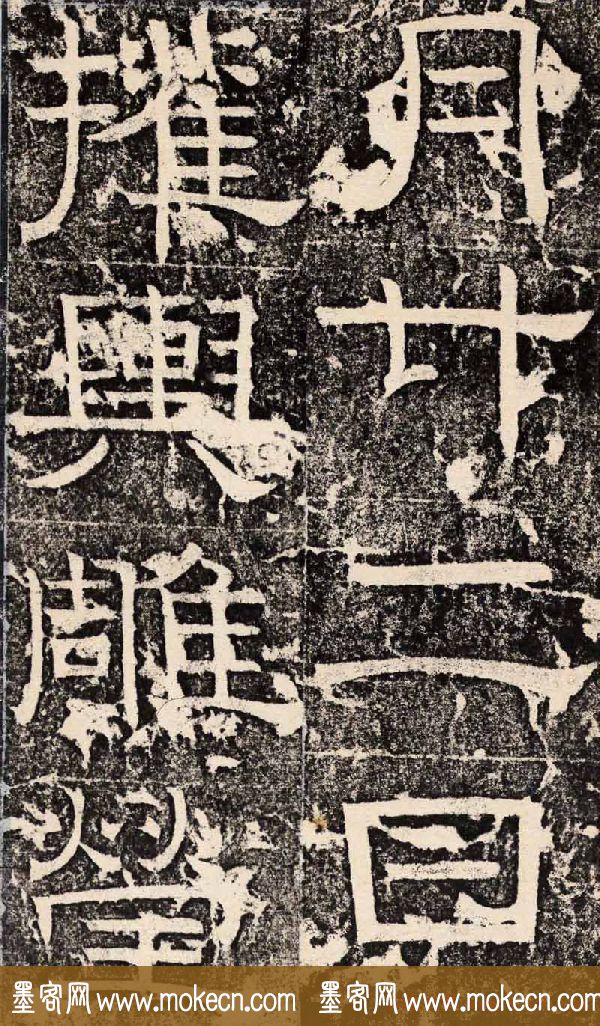 月廿二日
權輿雕
墨客网 www.mokecn.com
墨客网 www.mokecn.com